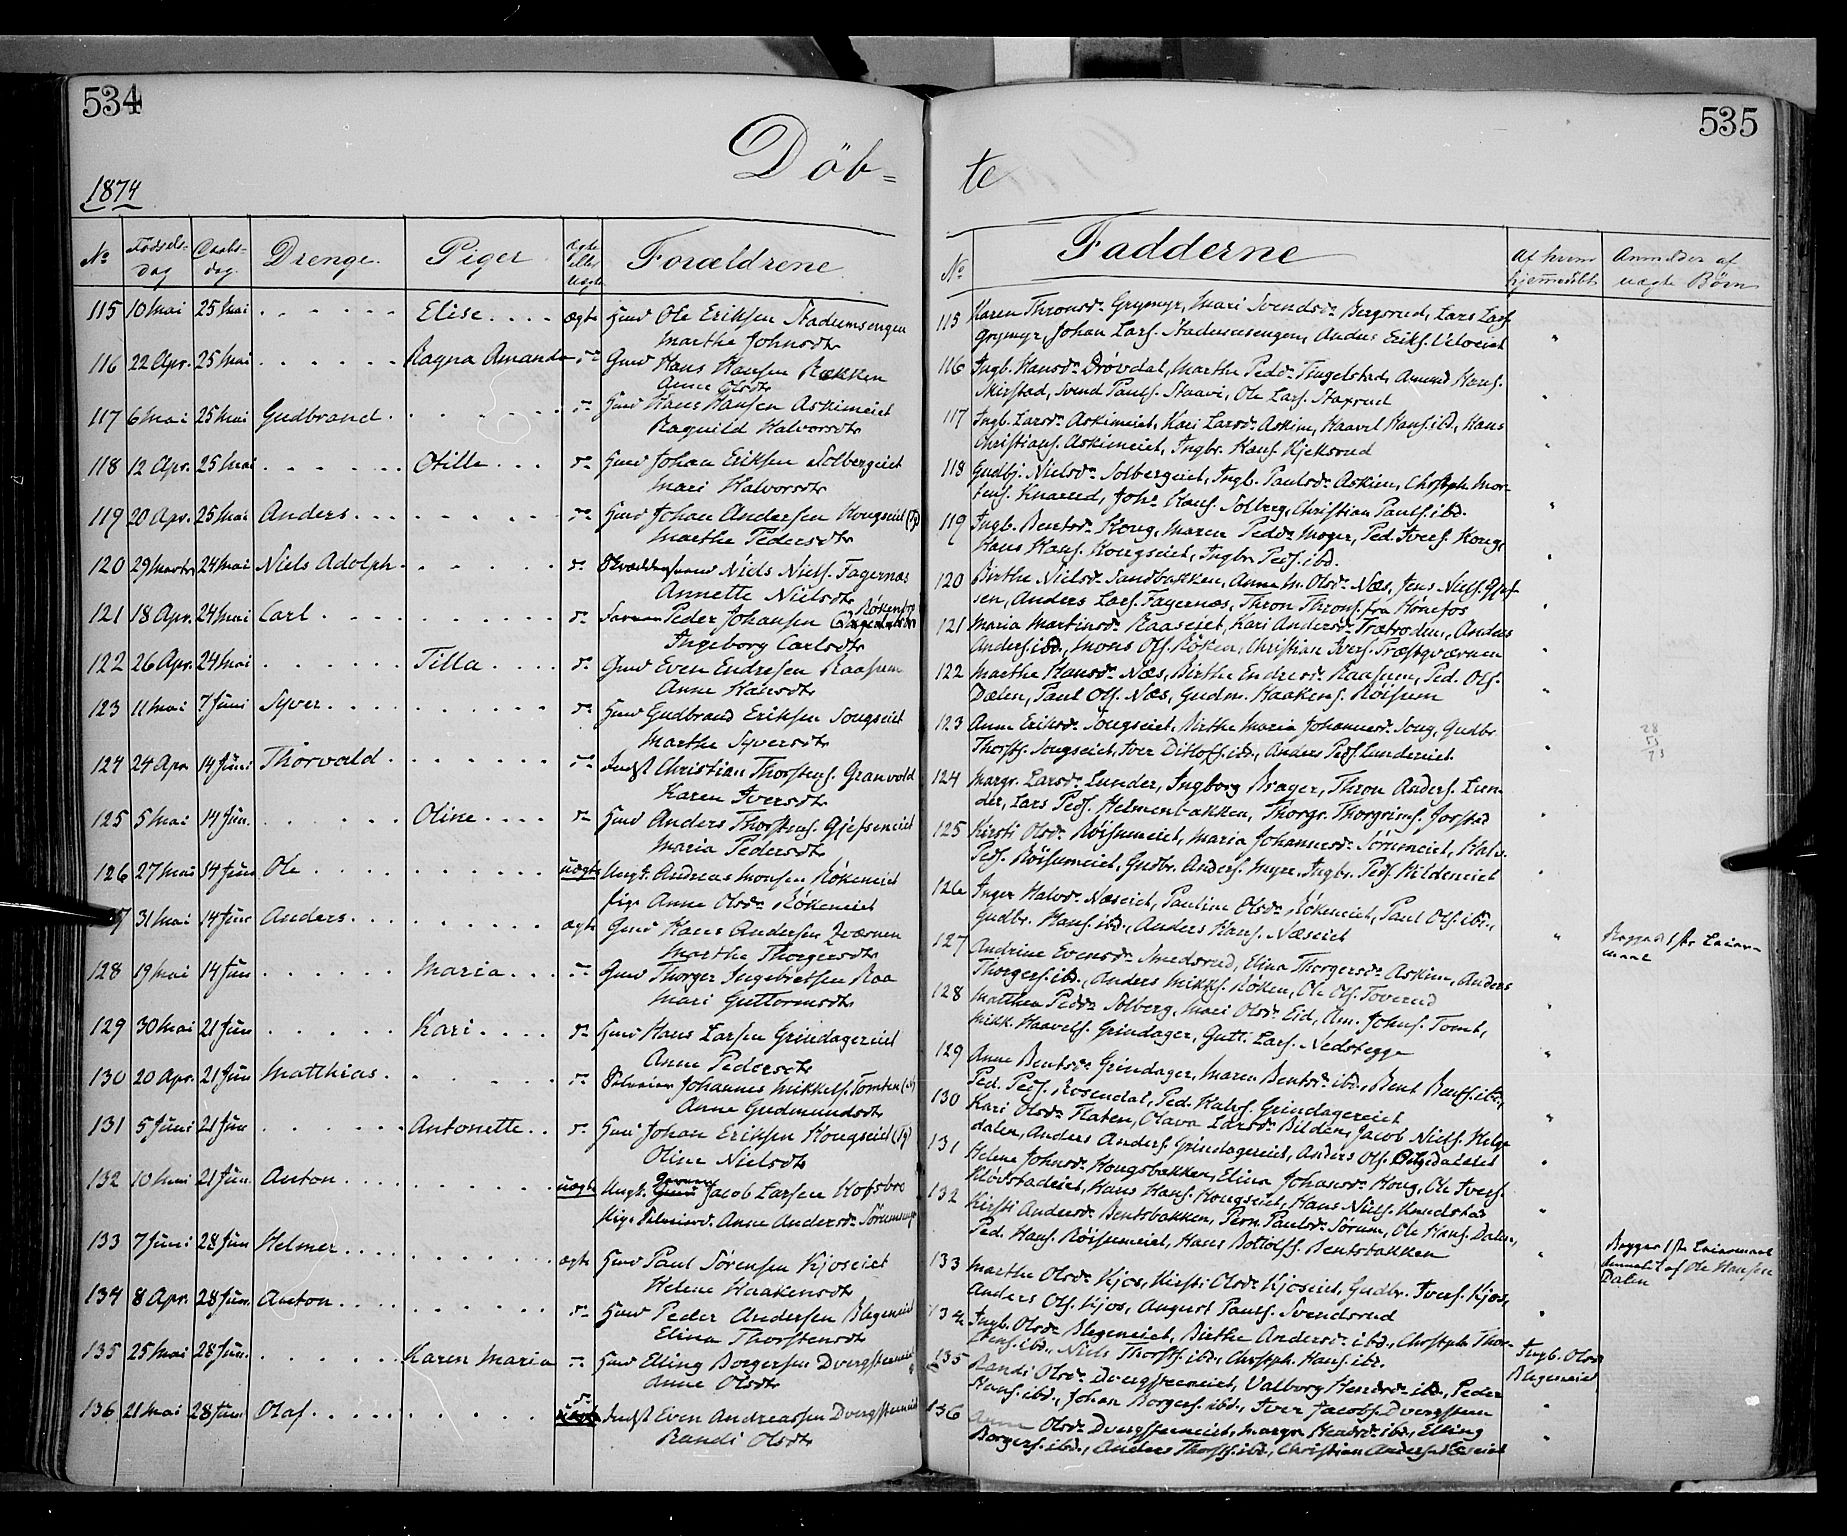 534
Döb=
1874
No Fødsels-dag Daabs-dag Drenge. Piger ægte eller uægte Forældrene
115 10 Mai 25 Mai . . . . . . Elise. . . . ægte Gmd Ole Eriksen Stadumsengen
Marthe Johnsdtr
116 22 Apr. 25 Mai . . . . . . Ragna Amanda do Gmd Hans Hansen Rækken
Anne Olsdtr
117 6 Mai 25 Mai Gudbrand . . . . . . do Hmd Hans Hansen Askimeiet
Raguild Halvorsdtr
118 12 Apr. 25 Mai . . . . . . Otille . . . do Hmd Johan Eriksen Solbergeiet
Mari Halvorsdtr
119 20 Apr. 25 Mai Anders. . . . . . . . do Hmd Johan Andersen Kongseiet (Tg)
Marthe Pedersdtr
120 29 Marts 24 Mai Niels Adolph . . . . . . do Skræddersvend Niels Niels. Fagernæs
Annette Nielsdtr
121 18 Apr. 24 Mai Carl . . . . . . . . . do Peder Johansen Røken
Ingeborg Carlsdtr
122 26 Apr. 24 Mai . . . . . . Tilla . . . . do Gmd Even Endresen Raassum
Anne Hansdtr
123 11 Mai 7 Juni Syver. . . . . . . . . . do Hmd Gudbrand Eriksen Songseiet
Marthe Syversdtr
124 24 Apr 14 Juni Thorvald . . . . . . . do Indst Christian Thorstens. Granvold
Karen Iversdtr
125 5 Mai 14 Jun. . . . . . . Oline . . . . do Hmd Anders Thorstens. Gjefseneiet
Maria Pedersdtr
126 27 Mai 14 Jun Ole . . . . . . . . . . uægte Ungk. Andreas Monsen Røkeneiet
Pige Anne Olsdr Røkeneiet
7 31 Mai 14 Jun Anders. . . . . . . . . ægte Gmd Hans Andersen Qværnen
Marthe Thorgersdtr
128 19 Mai 14 Jun . . . . . . Maria. . . do Gmd Thorger Ingebretsen Raa
Mari Guttormsdtr
129 30 Mai 21 Jun . . . . . . Kari. . . . do Hmd Hans Larsen Grindagereiet
Anne Pedersdtr
130 20 Apr. 21 Jun Matthias. . . . . . . do Selveier Johannes Mikkels. Tomten
Anne Gudmundsdtr
131 5 Juni 21 Jun . . . . . . Antonette. . do Hmd Johan Eriksen Kongseiet (Tg)
Oline Nielsdtr
132 10 21 Jun. Anton. . . . . . . . . . uægte Ungk. Jacob Larsen Hofsbro
Pige Anne Andersdr
133 7 Juni 28 Jun Helmer. . . . . . . . . ægte Hmd Paul Sörensen Kjoseiet
Helene Haakensdtr
134 8 Apr. 28 Jun. Anton. . . . . . . . . . do Hmd Peder Andersen Blegeneiet
Elina Thorstensdtr
135 25 Mai 28 Jun. . . . . . . Karen Maria do Hmd Elling Borgersen Dvergsteneiet
Anne Olsdtr
136 21 Mai 28 Jun. Olaf. . . . . . . . . . do Indst Even Andreassen Dvergsteneiet
Randi Olsdtr
535
te
No Fadderne Af hvem hjemmedöbt Anmelder af uægte Børn
115 Karen Thronsdr Grymyr, Mari Svendsdr Bergsrud, Lars Lars.
Grymyr, Johan Lars. Stadumsengen, Anders Eriks.
116 Ingb. Hansdr Drövdal, Marthe Pedsdr Tingelstad, Amund Hans.
Mirstad, Svend Pauls. Staavi, Ole Lars. Staxrud
117 Ingb. Larsdr Askimeiet, Kari Larsdr Askim, Haavel Hans. ibd., Hans
Christians. Askimeiet, Ingbr. Hans. Kjeksrud
118 Gudbj. Nielsdr Solbergeiet, Ingb. Paulsdr Askim, Christph. Mor-
tens. Knarud, Johs Hans. Solberg, Christian Pauls. ibd.
119 Ingb. Bentsdr Kong, Maren Pedsdr Moger, Ped. Ivers. Kong,
Hans Hans. Kongseiet, Ingbr. Peds. ibd.
120 Birthe Nielsdr Sandbakken, Anne M. Olsdr Næs, Jens Niels. Gjef-
sen, Anders Lars. Fagernæs, Thron Throns. fra Hönefos
121 Maria Martinsdr Raaseiet, Kari Andersdr Trætroden, Anders
Anders. ibd., Mons Ols. Röken, Christian Ivers. Præstqværnen
122 Marthe Hansdr Næs, Birthe Endresdr Raassum, Ped. Ols.
Dælen, Paul Ols. Næs, Gudm. Haakens. Röisum
123 Anne Eriksdr Songseiet, Birthe Maria Johannesdr Song, Gudbr.
Thorsts. Songseiet, Iver Ditlofs. ibd., Anders Peds. Lundereiet
124 Margr. Larsdr Lunder, Ingborg Brager, Thron Anders. Lun-
der, Lars Peds. Helmenbakken, Thorgr. Thorgrims. Jorstad
125 Kirsti Olsdr Röisumeiet, Maria Johannesdr Sörumeiet, Halv.
Peds. Röisumeiet, Gudbr. Anders. Myre, Ingbr. Peds. Hildeneiet
126 Inger Halvsdr Næseiet, Pauline Olsdr Rökeneiet, Paul Ols. ibd.,
Gudbr. Hans. ibd., Anders Hans. Næseiet Begges 1ste Leier-
maal
127 Andrine Evensdr Smedsrud, Elina Thorgersdr Askim, Anders
Thorgers. ibd., Anders Mikks. Röken, Ole Ols. Toverud
128 Matthea Pedsdr Solberg, Mari Olsdr Eid, Am. Johns. Tomt,
Mikk. Haavels. Grindager, Gutt. Lars. Nedstegge
129 Anne Bentsdr Grindager, Maren Bentsdr ibd., Bent Bents. ibd.,
Ped. Peds. Rosendal, Ped. Halvs. Grindagereiet
130 Kari Olsdr Flaten, Olava Larsdr Bilden, Jacob Niels. Helge-
dalen, Anders Anders. Grindagereiet, Anders Ols.
131 Helene Johnsdr Kongsbakken, Elina Johansdr Kong, Ole Ivers.
Klövstadeiet, Hans Hans. Kongseiet, Hans Niels.
132 Kirsti Andersdr Bentsbakken, Pern. Paulsdr Sørum, Ole Hans. Dalen,
Ped. Hans. Röisumeiet, Hans Botolfs. Bentsbakken Begges 1ste Leiermaal
Anmeldt af Ole Hansen
Dalen
133 Marthe Olsdr Kjos, Kirsti Olsdr Kjoseiet, Gudbr. Ivers. Kjos,
Anders Ols. Kjos, August Pauls. Svendsrud
134 Ingb. Olsdr Blegeneiet, Birthe Andersdr ibd., Christph. Thor-
stens. ibd., Niels Thorsts. ibd., Christph. Hans. ibd. Ingb. Olsdr
Blegeneiet
135 Randi Olsdr Dvergsteneiet, Valborg Hendsdr ibd., Peder
Hans. ibd., Johan Borgers. ibd., Iver Jacobs. Dvergsten
136 Anne Olsdr Dvergsteneiet, Margr. Hendsdr ibd., Elling
Borgers. ibd., Anders Thorsts. ibd., Christian Anders.